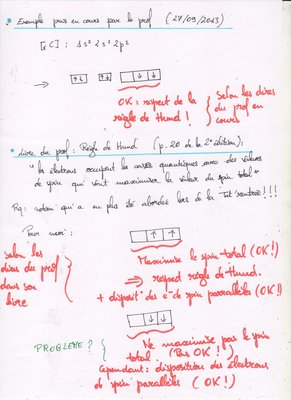 Exemple pris en cours par le prof (27/09/2013)
[6C] : 1s² 2s² 2p²
↑↓ ↑↓ ↓↓
OK : respect de la règle de Hund !
Selon les dires du prof en cours
Livre du prof : Règle de Hund (p. 20 de la 2e édition) :
"les électrons occupent les cases quantiques avec des valeurs
de spin qui vont maximiser la valeur du spin total"
Rq : notion qui a en plus été abordée lors de la !!!
Pour moi :
↑ ↑
Selon les dires du prof dans son livre
Maximise le spin total (OK !)
⇒ respect règle de Hund.
+ disposit° des e- de spin parallèles (OK !)
↓ ↓
PROBLEME ?
Ne maximise pas le spin
total (Pas OK !!)
Cependant : disposition des électrons
de spin parallèles (OK !)